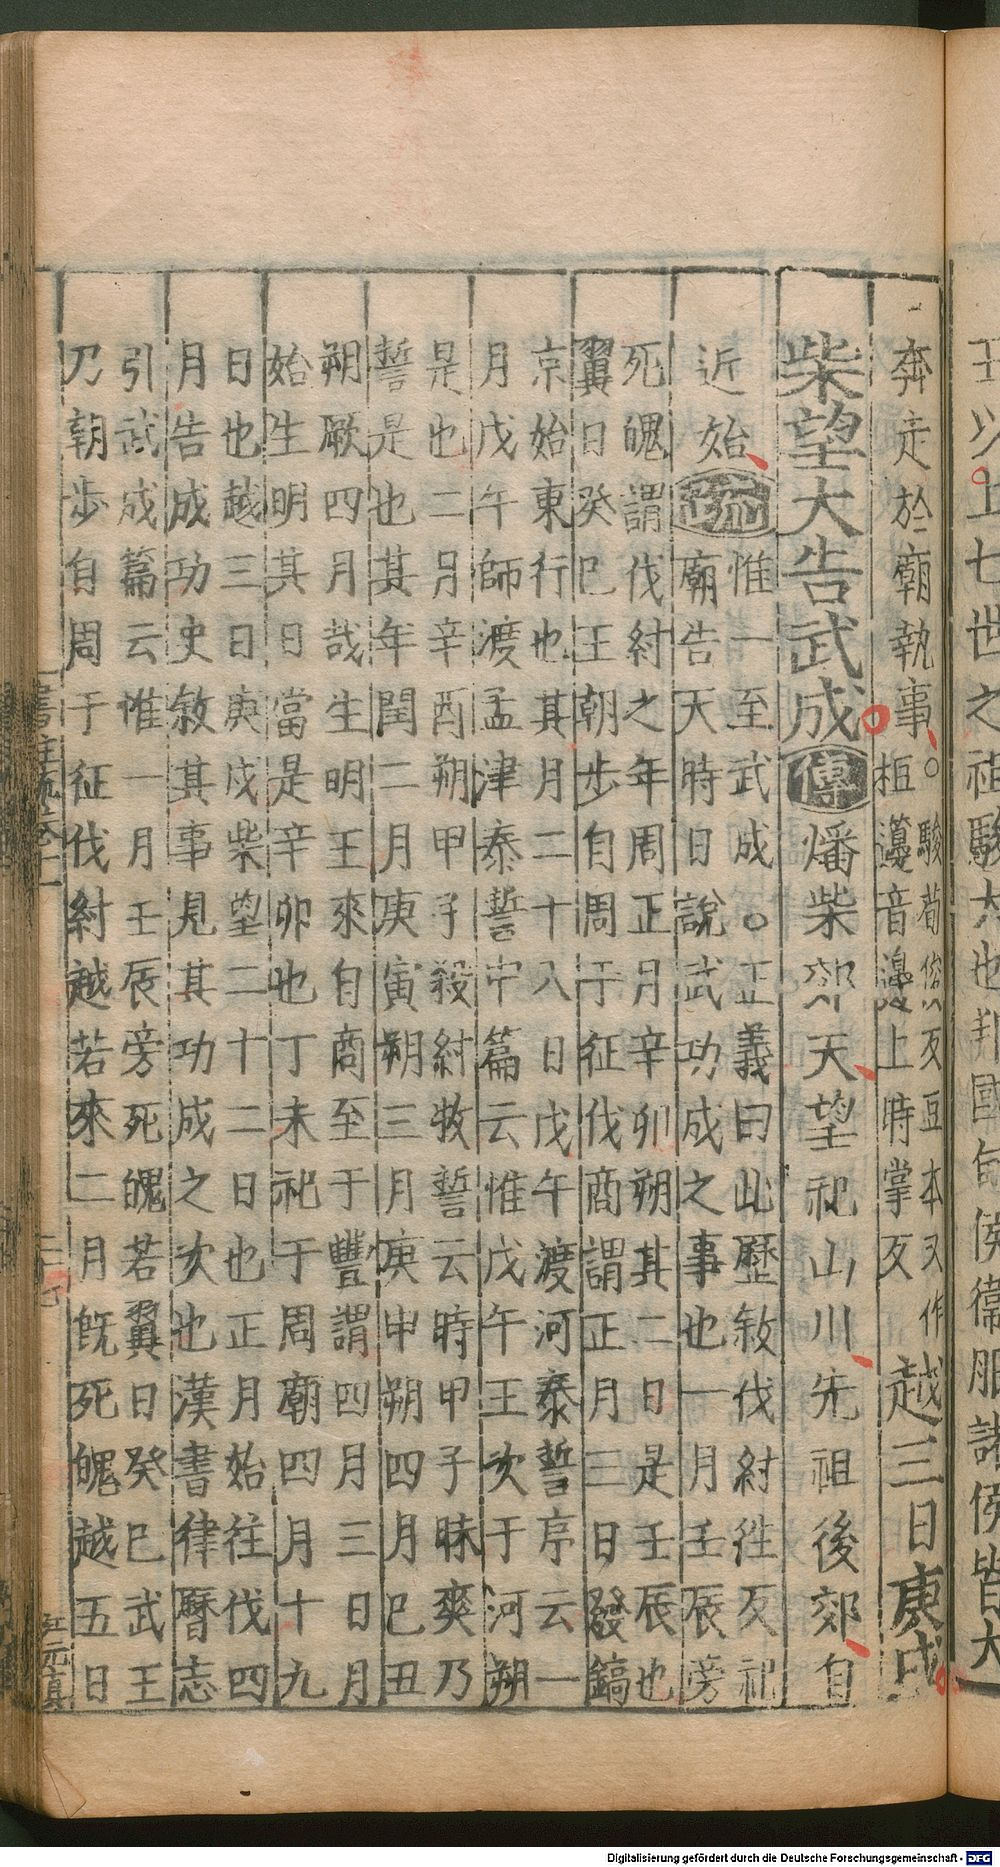 王以上七世之祖駿大也邦國甸侯衛服諸侯皆大
奔走於廟執事。駿荀俊反豆本又作
柜籩音邊上時掌反
越三日庚戌
柴望大告武成。傳燔柴郊天望祀山川先祖後郊自
近始
疏惟一至武成。正義曰此歷敘伐紂往反祀
廟告天時日說武功成之事也一月壬辰旁
死魄謂伐紂之年周正月辛卯朔其二日是壬辰也
翼日癸巳王朝步自周于征伐商謂正月三日發鎬
京始東行也其月二十八日戊午渡河泰誓序云一
月戊午師渡孟津泰誓中篇云惟戊午王次于河朔
是也二月辛酉朔甲子殺紂牧誓云時甲子昧爽乃
誓是也其年閏二月庚寅朔三月庚申朔四月己丑
朔厥四月哉生明王來自商至于豐謂四月三日月
始生明其日當是辛卯也丁未祀于周廟四月十九
日也越三日庚戌柴望二十二日也正月始往伐四
月告成功史敘其事見其功成之次也漢書律曆志
引武成篇云惟一月壬辰旁死魄若翼日癸巳武王
乃朝步自周于征伐紂越若來二月旣死魄越五日
書註疏卷十一
江元真
Digitalisierung gefördert durch die Deutsche Forschungsgemeinschaft - DFG